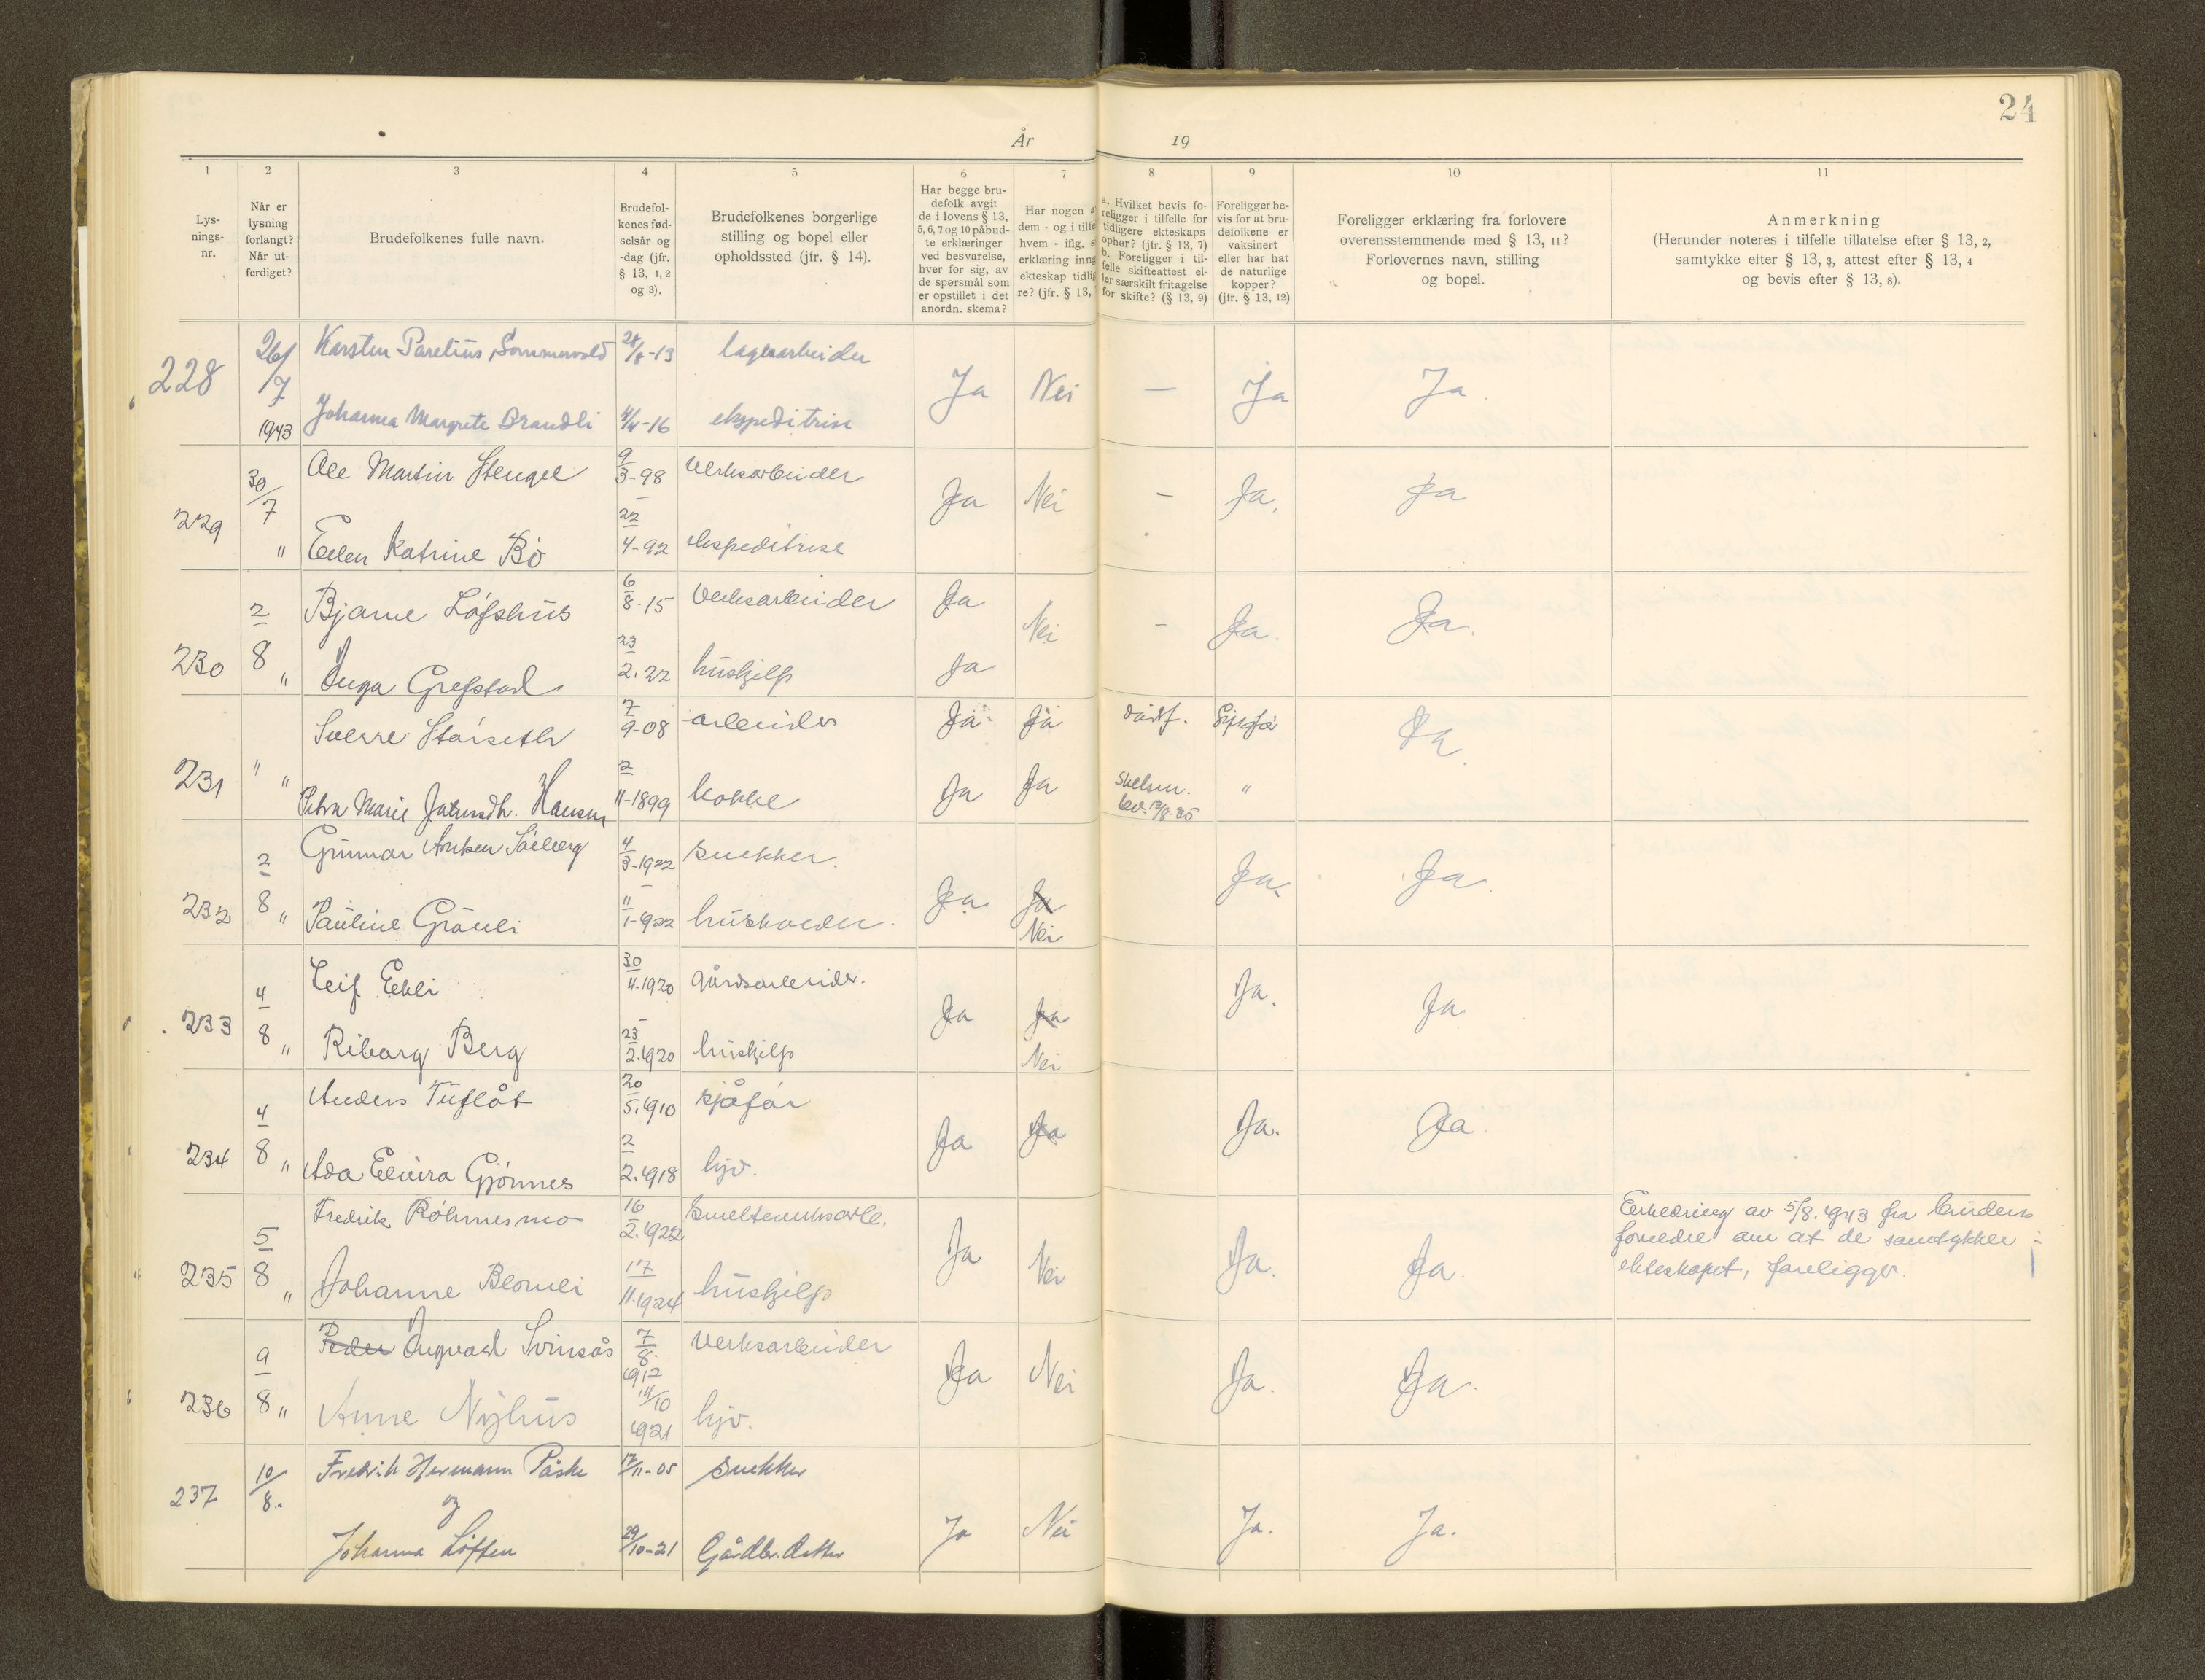 24
År 19
1 2 3 4 5 6 7 8 9 10 11
Lys-
nings-
nr.
Når er
lysning
forlangt?
Når ut-
ferdiget?
Brudefolkenes fulle navn.
Brudefol-
kenes fød-
selsår og
-dag (jfr.
§ 13, 1, 2
og 3).
Brudefolkenes borgerlige
stilling og bopel eller
opholdssted (jfr. § 14).
Har begge bru-
defolk avgit
de i lovens § 13,
5, 6, 7 og 10 påbud-
te erklæringer
ved besvarelse,
hver for sig, av
de spørsmål som
er opstillet i det
anordn. skema?
Har nogen a
dem - og i tilfe
hvem - iflg. s
erklæring inng
ekteskap tidlig
re? (jfr. § 13,
a. Hvilket bevis fo-
religger i tilfelle for
tidligere ekteskaps
ophør? (jfr. § 13, 7)
b. Foreligger i til-
felle skifteattest el-
ler særskilt fritagelse
for skifte? (§ 13, 9)
Foreligger be-
vis for at bru-
defolkene er
vaksinert
eller har hat
de naturlige
kopper?
(jfr. § 13, 12)
Foreligger erklæring fra forlovere
overensstemmende med § 13, 11?
Forlovernes navn, stilling
og bopel.
Anmerkning
(Herunder noteres i tilfelle tillatelse efter § 13, 2,
samtykke efter § 13, 3, attest efter § 13, 4
og bevis efter § 13, 8).
228 26/7 1943 Karsten Parelius Sommervold 28/8-13 lagerarbeider
Johanna Margrete Brandli 4/4-16 ekspeditrise
Ja Nei — Ja Ja.
229 30/7 " Ole Martin Stengel 9/3-98 verksarbeider
Ellen Katrine Bö 22/4-92 ekspeditrise
Ja Nei - Ja. Ja
230 2/8 " Bjarne Löfshus 6/8-15 Verksarbeider Ja
Inga Grefstad 23/2-22 hushjelp Ja
Nei - Ja. Ja.
231 " " Sverre Störseth 7/9-08 arbeider Ja Ja Ja.
Petra Marie Hansen 2/11-1899 kokke Ja Ja "
232 2/8 " Gunnar Solberg 4/3-1922 snekker.
Pauline Grönli 11/1-1922
Ja. Ja Nei Ja. Ja.
233 4/8 " Leif Eekli 30/4.1920 gårdsarbeider.
Riborg Berg 23/2.1920 hushjelp
Ja Ja Nei Ja. Ja
234 4/8 " Anders Tuflåt 20/5.1910 sjåför
Ada Elvira Gjönnes 2/2.1918 hjv.
Ja Ja Ja. Ja.
235 5/8 " Fredrik Röhmesmo 16/2.1922 Smelteverksarb.
Johanne Blomli 17/11.1924 hushjelp
Ja Nei Ja. Ja.
Erklæring av 5/8.1943 fra brudens
foreldre om at de samtykker i
ekteskapet, foreligger.
236 9/8 " Peder Ingvald Svinsås 7/8.1912 Verksarbeider
Anne Nyhus 14/10 1921 hjv.
Ja Nei Ja. Ja.
237 10/8. Fredrik Hermann Påske 12/11-05 snekker
og
Johanna Löften 29/10-21 Gårdbr. datter
Ja Nei Ja. Ja.